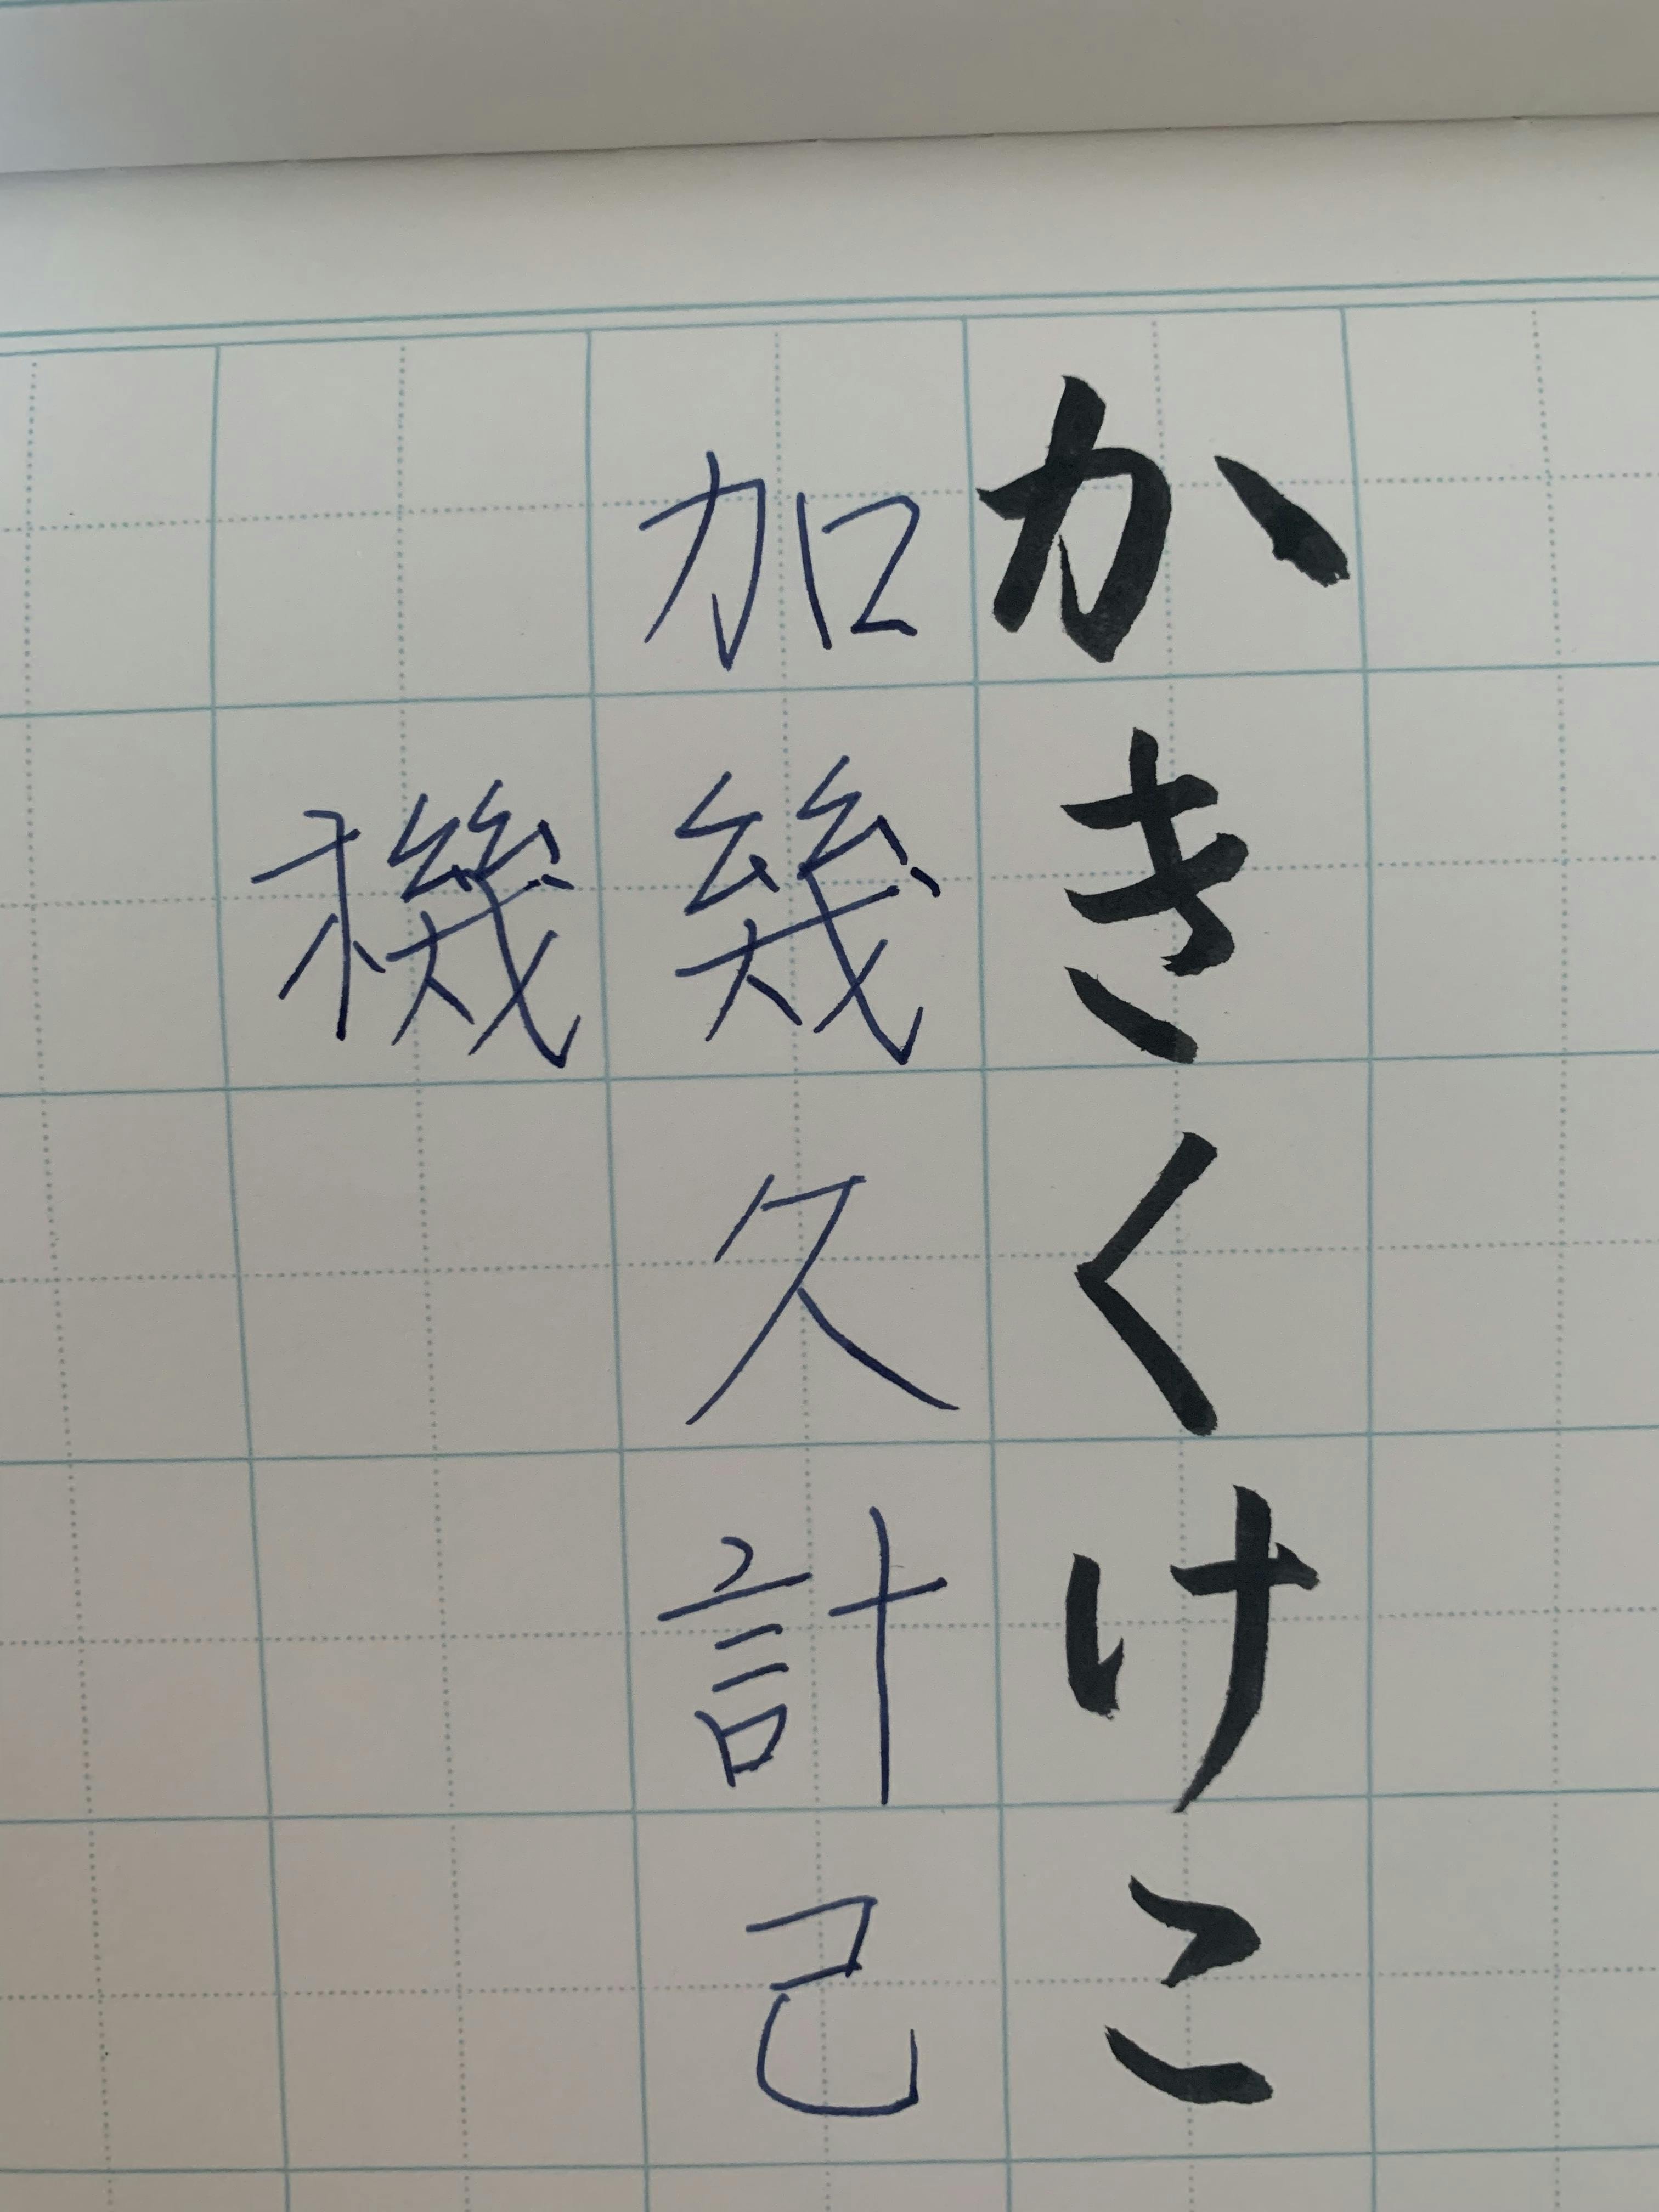 かきくけこ
加幾久計己
機